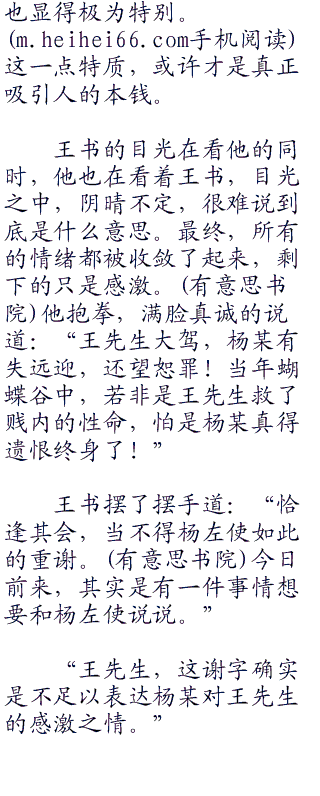 也显得极为特别。
(m.heihei66.com手机阅读)
这一点特质，或许才是真正
吸引人的本钱。
王书的目光在看他的同
时，他也在看着王书，目光
之中，阴晴不定，很难说到
底是什么意思。最终，所有
的情绪都被收敛了起来，剩
下的只是感激。(有意思书
院)他抱拳，满脸真诚的说
道：“王先生大驾，杨某有
失远迎，还望恕罪！当年蝴
蝶谷中，若非是王先生救了
贱内的性命，怕是杨某真得
遗恨终身了！”
王书摆了摆手道：“恰
逢其会，当不得杨左使如此
的重谢。(有意思书院)今日
前来，其实是有一件事情想
要和杨左使说说。”
“王先生，这谢字确实
是不足以表达杨某对王先生
的感激之情。”